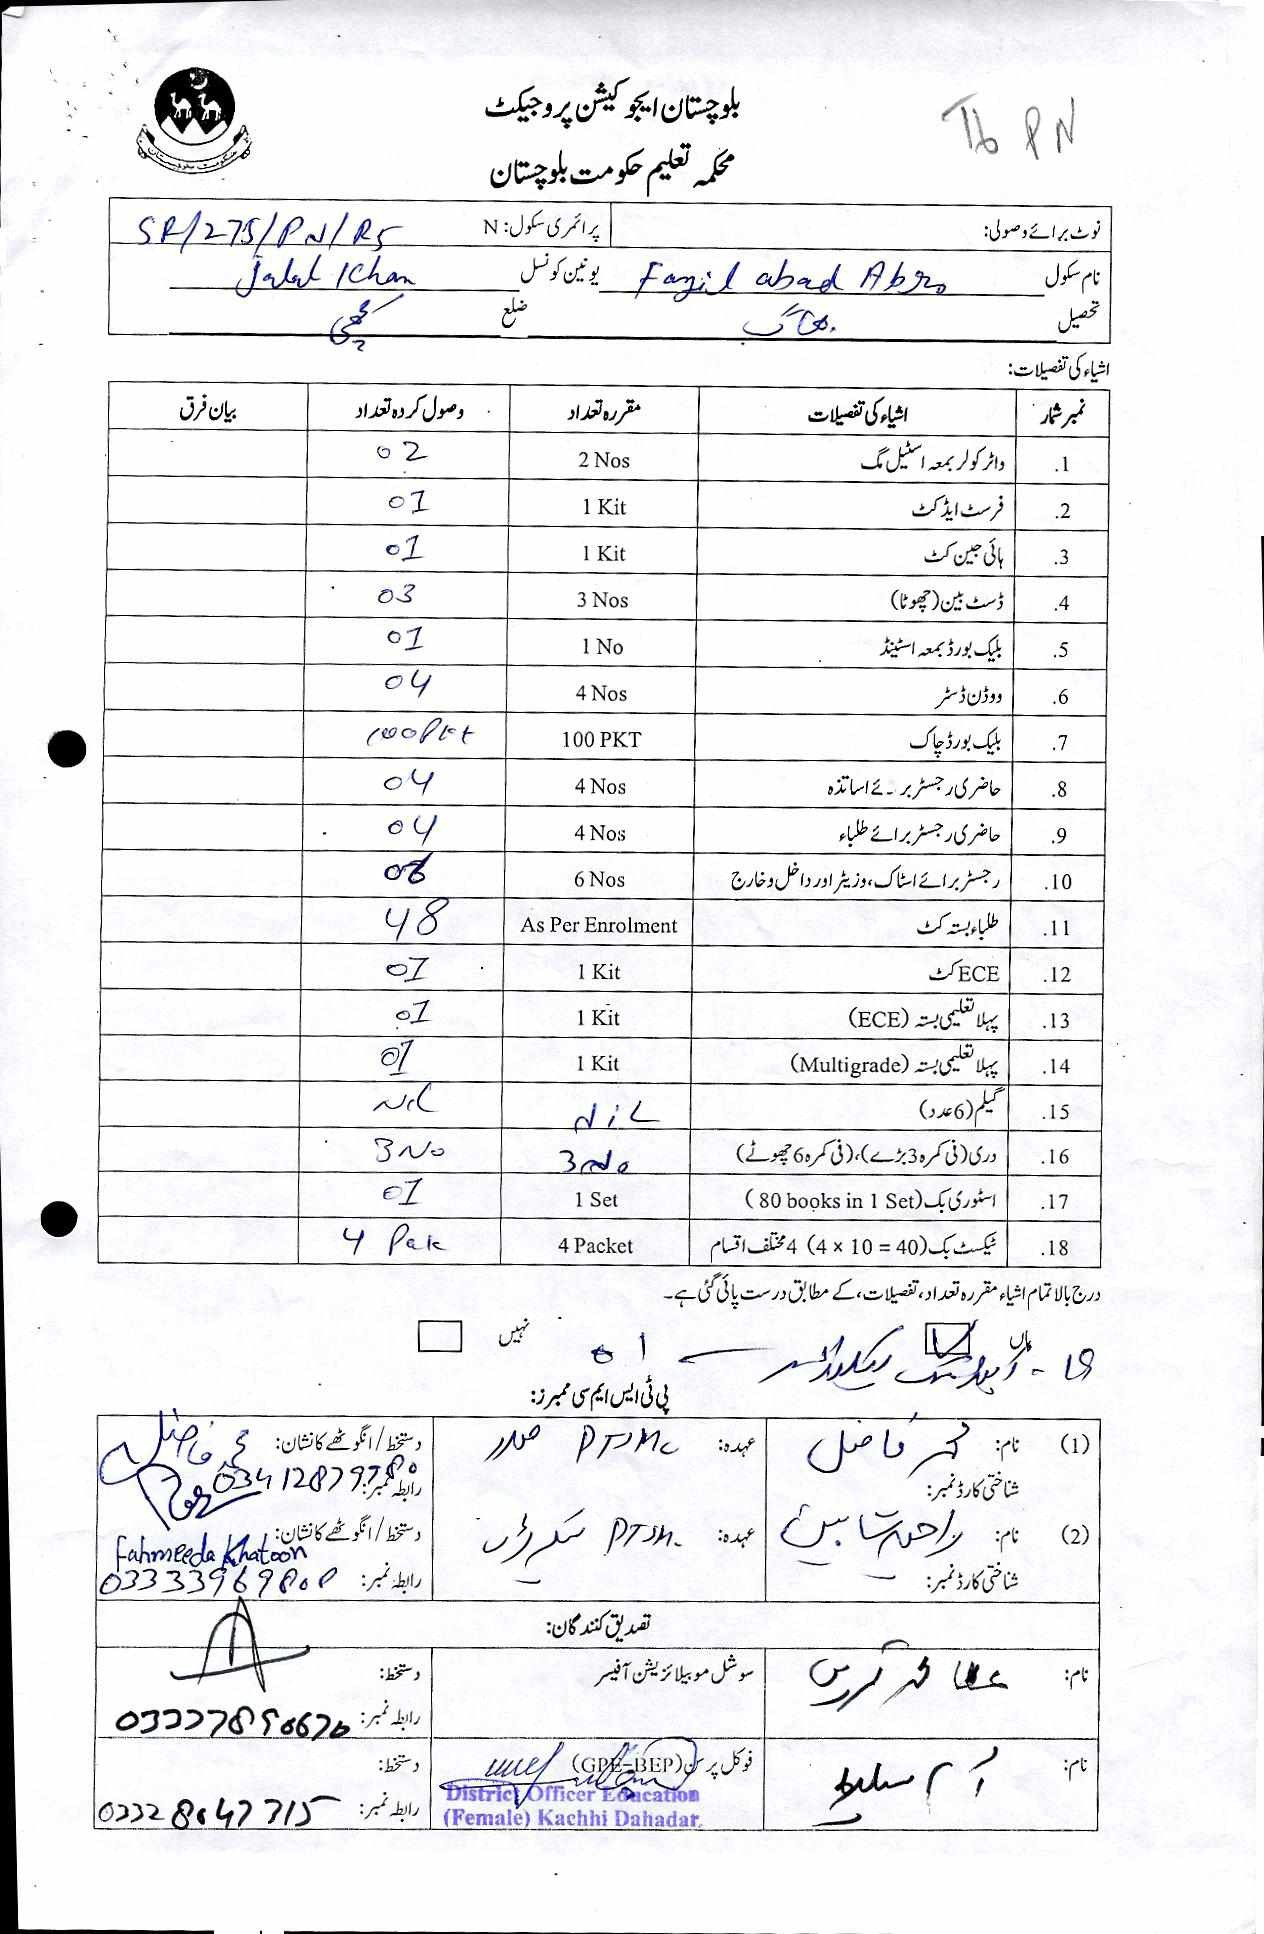 بلوچستان ایجوکیشن پروجیکٹ
T6 PN
محکمہ تعلیم حکومت بلوچستان
حکومت بلوچستان
نوٹ برائے وصولی: پرائمری سکول: N SR/275/PN/R5
نام سکول Fazil abad Abro یونین کونسل Jalal Khan
تحصیل بھاگ ضلع کچھی
اشیاء کی تفصیلات:
نمبر شمار اشیاء کی تفصیلات مقررہ تعداد وصول کردہ تعداد بیان فرق
1. واٹر کولر بمعہ اسٹیل مگ 2 Nos 02
2. فرسٹ ایڈ کٹ 1 Kit 01
3. ہائی جین کٹ 1 Kit 01
4. ڈسٹ بین (چھوٹا) 3 Nos 03
5. بلیک بورڈ بمعہ اسٹینڈ 1 No 01
6. ووڈن ڈسٹر 4 Nos 04
7. بلیک بورڈ چاک 100 PKT 100Pkt
8. حاضری رجسٹر برائے اساتذہ 4 Nos 04
9. حاضری رجسٹر برائے طلباء 4 Nos 04
10. رجسٹر برائے اسٹاک، وزیٹر اور داخل و خارج 6 Nos 06
11. طلباء بستہ کٹ As Per Enrolment 48
12. ECE کٹ 1 Kit 01
13. پہلا تعلیمی بستہ (ECE) 1 Kit 01
14. پہلا تعلیمی بستہ (Multigrade) 1 Kit 01
15. گیلم (6 عدد) NiL NiL
16. دری (فی کمرہ 3 بڑے)، (فی کمرہ 6 چھوٹے) 3No 3No
17. اسٹوری بک (80 books in 1 Set) 1 Set 01
18. ٹیکسٹ بک (4 x 10 = 40) 4 مختلف اقسام 4 Packet 4 Pak
درج بالا تمام اشیاء مقررہ تعداد، تفصیلات، کے مطابق درست پائی گئی ہے۔
ہاں نہیں
19 - 01
پی ٹی ایس ایم سی ممبرز:
(1) نام: محمد فاضل عہدہ: صدر PTSMC دستخط / انگوٹھے کا نشان: محمد فاضل
شناختی کارڈ نمبر: رابطہ نمبر: 03412879780
(2) نام: عہدہ: PTSM. دستخط / انگوٹھے کا نشان: Fahmeeda Khatoon
شناختی کارڈ نمبر: رابطہ نمبر:
تصدیق کنندگان:
نام: سوشل موبیلائزیشن آفیسر دستخط:
رابطہ نمبر:
نام: فوکل پرسن (GPE-BEP) دستخط:
District Officer Education
(Female) Kachhi Dahadar.
رابطہ نمبر: